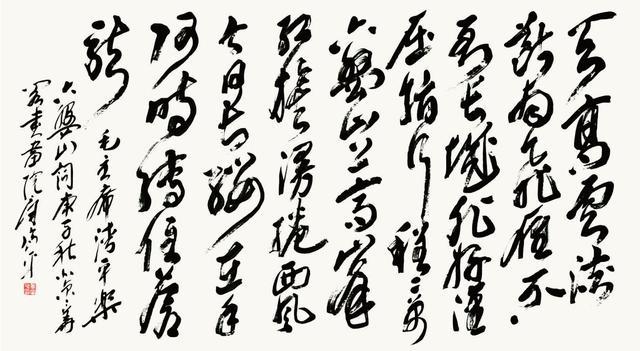 天高雲淡
望斷南飛雁不
到長城非好漢
屈指行程二萬
六盤山上高峰
紅旗漫捲西風
今日長纓在手
何時縛住蒼
龍 毛主席清平樂
六盤山詞庚子秋